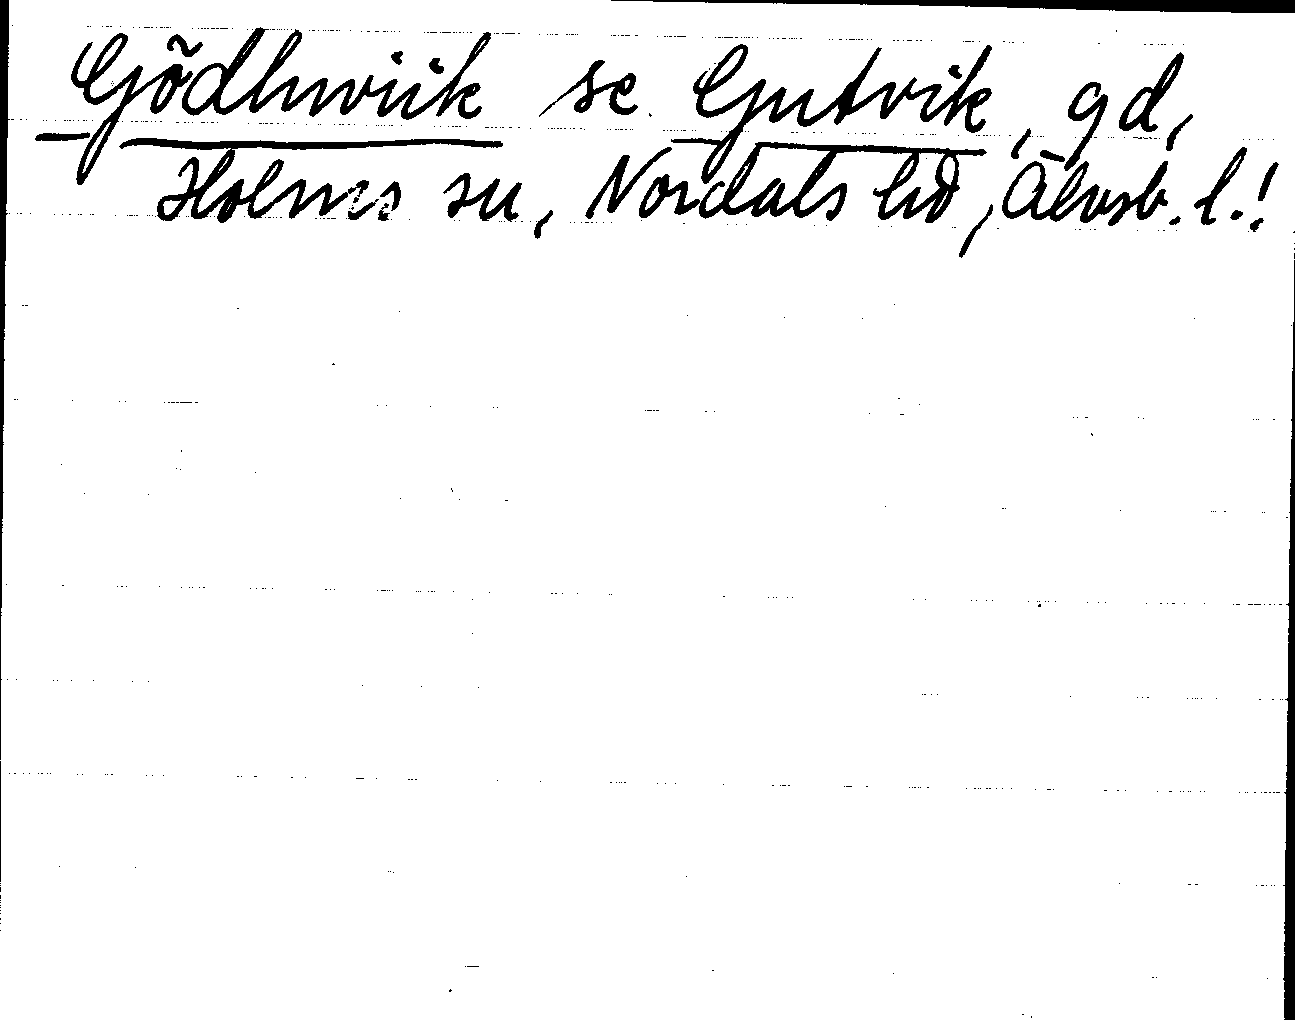 Gödhwiik se Gutvik, gd,
Holms sn, Nordals hd, Älvsb. l.!